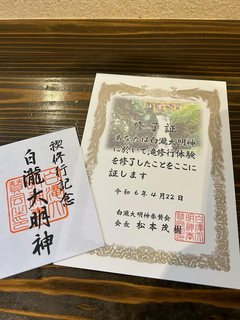 禊修行記念
白瀧大明神
修了証
あなたは白瀧大明神
に於いて滝修行体験
を修了したことをここに
証します
令和6年4月22日
白瀧大明神奉賛会
会長 松本茂樹